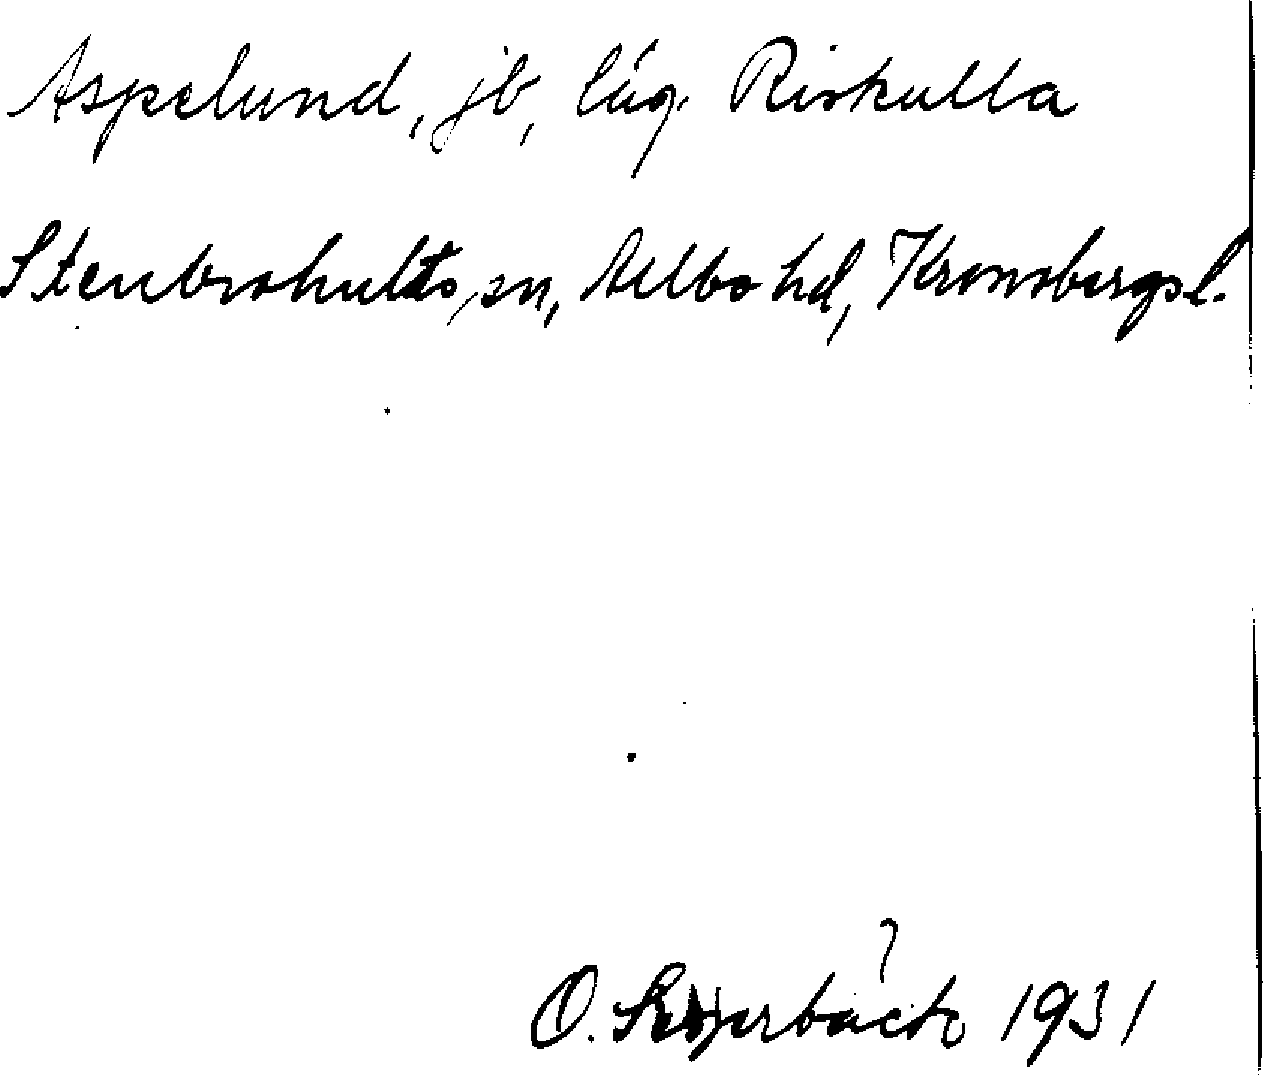 Aspelund, jb, låg. Riskulla
Stenbrohults sn, Allbo hd, Kronobergs l.
O. 1931